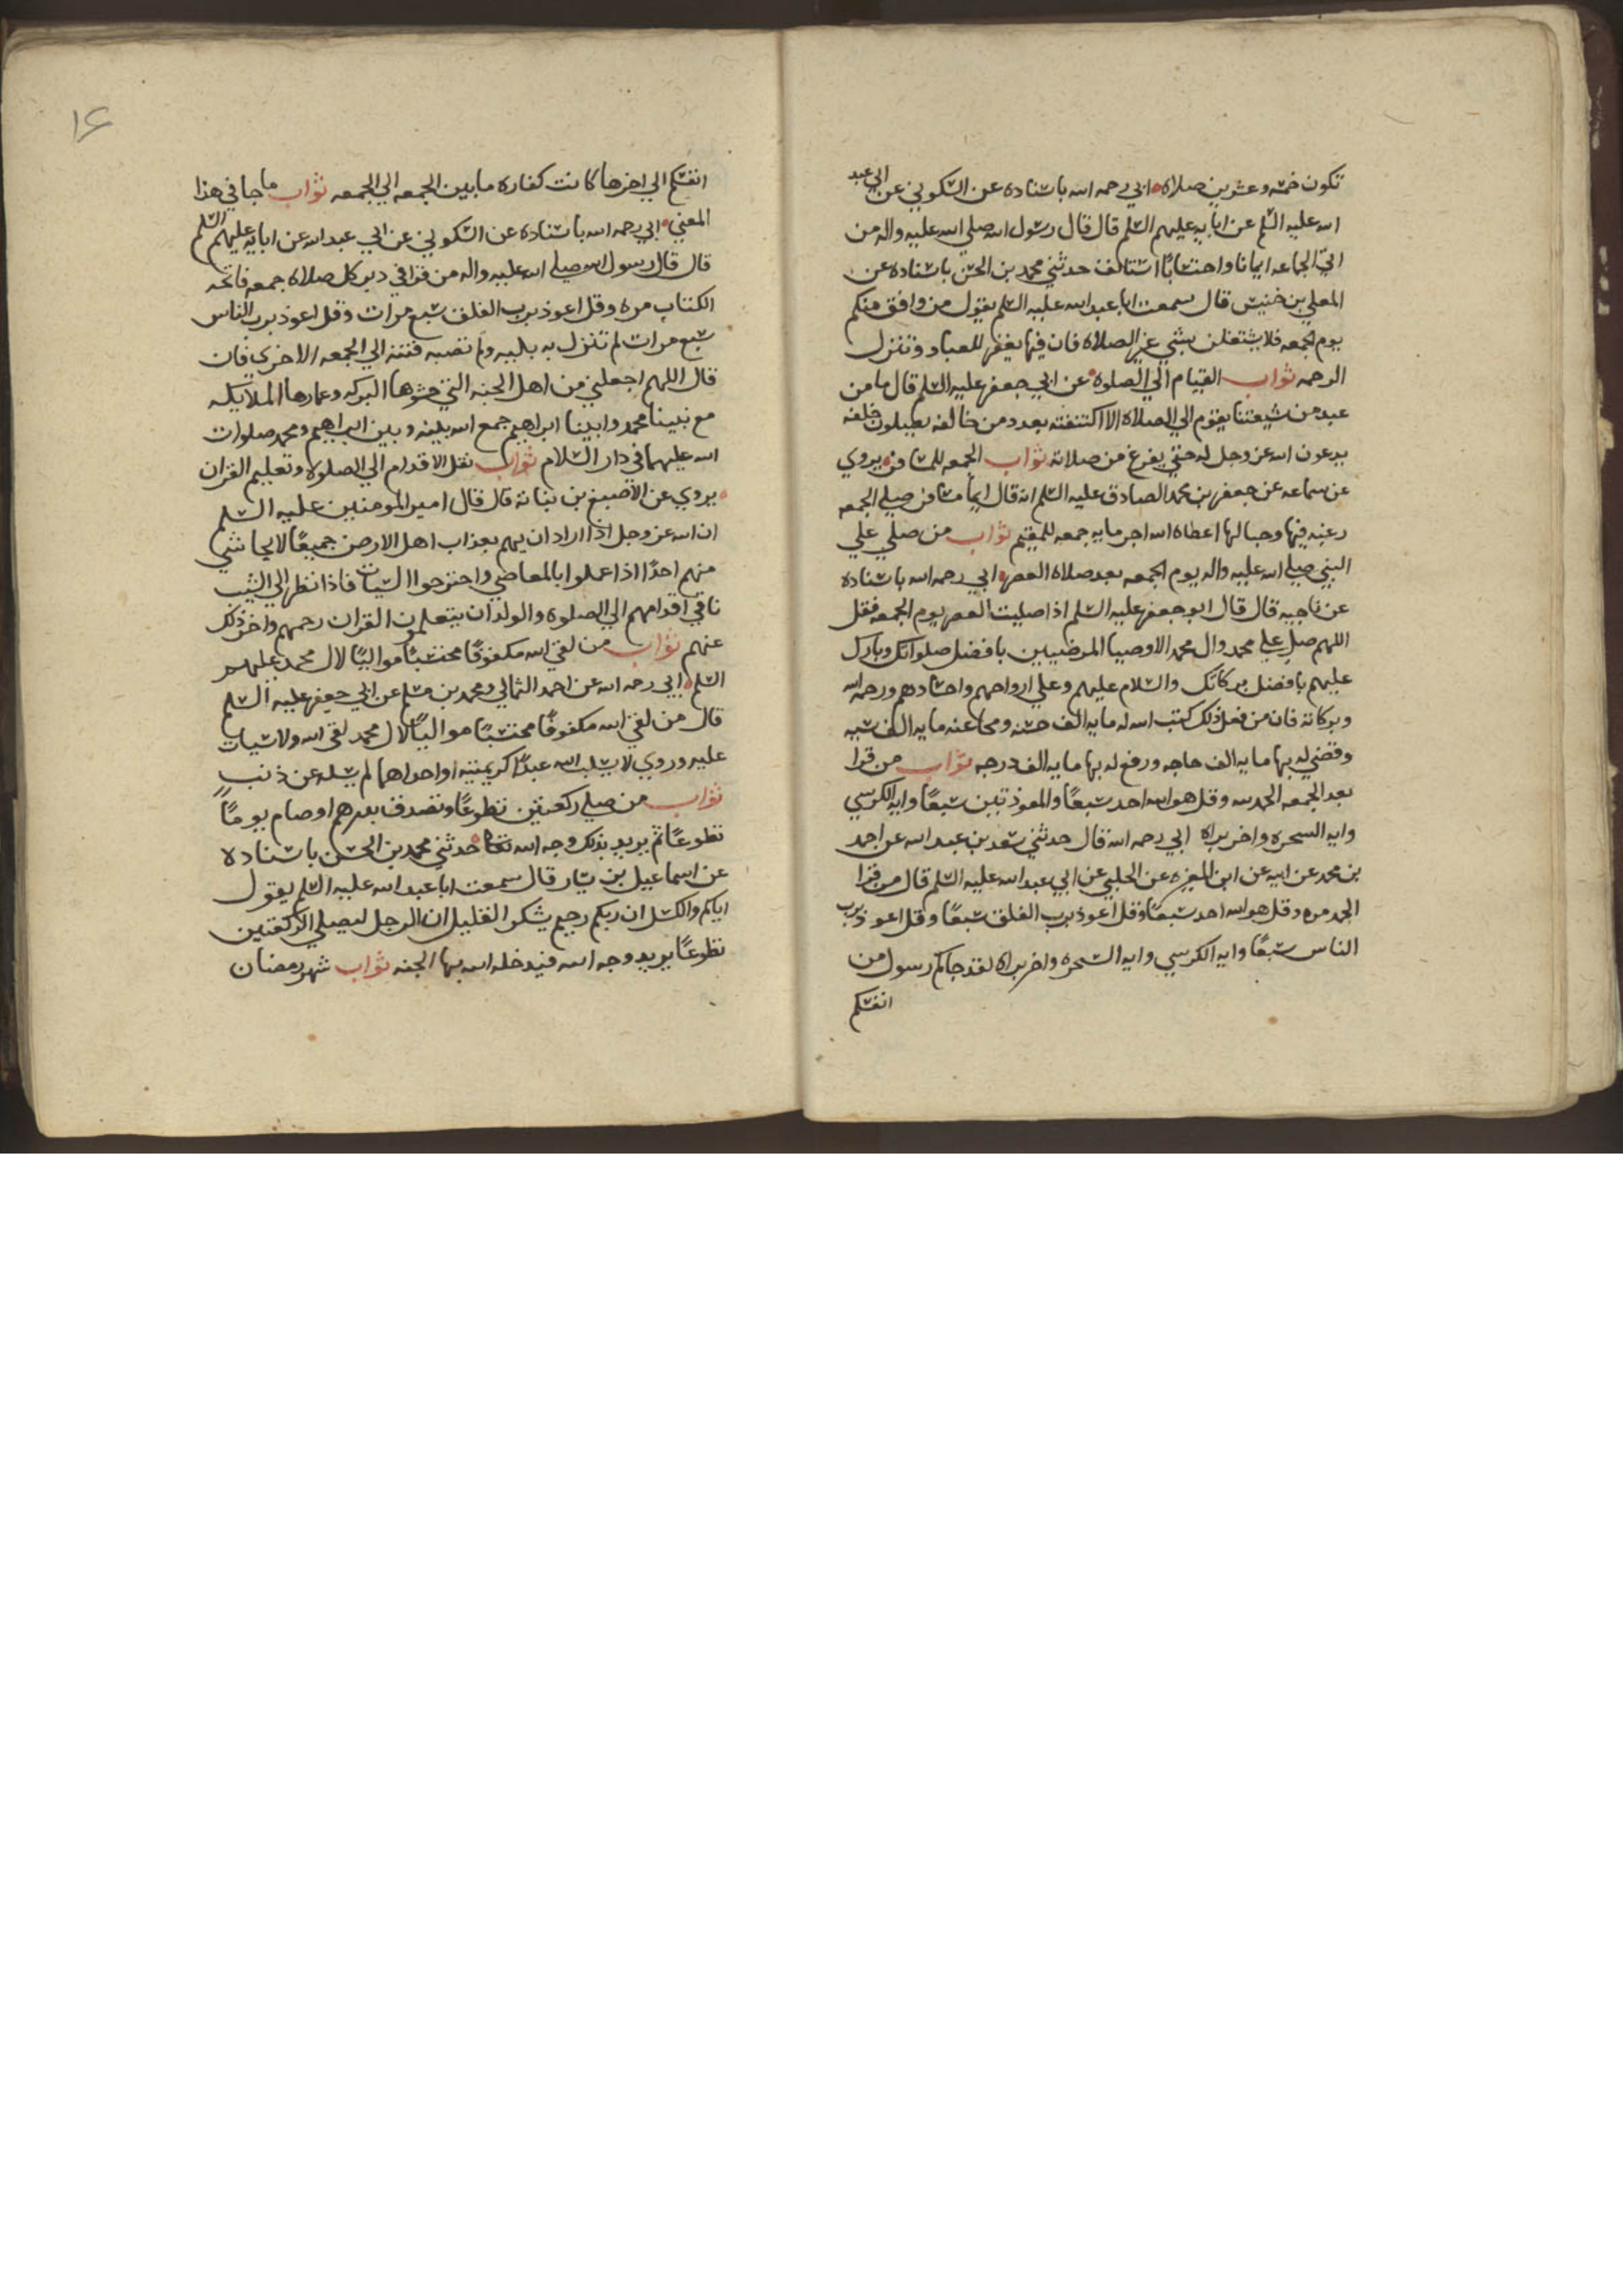 تكون خمسه وعشرين صلاه ابي رحمه الله باسناده عن السكوني عن ابي عبد
الله عليه السلم عن ابايه عليهم السلم قال قال رسول الله صلي الله عليه واله من
اتي الجماعه ايمانا واحتسابًا استانف حدثني محمد بن الحسن باسناده عن
المعلي بن خنيس قال سمعت ابا عبد الله عليه السلم يقول من وافق منكم
يوم الجمعه فلا يشتغلن بشي غير الصلاه فان فيها يغفر للعباد وتنزل
الرحمه ثواب القيام الي الصلوه عن ابي جعفر عليه السلم قال ما من
عبد من شيعتنا يقوم الي الصلاه الا اكتنفته بعدد من خالفه يصلون خلفه
يدعون الله عز وجل له حتي يفرغ من صلاته ثواب الجمعه للمسافر يروي
عن سماعه عن جعفر بن محمد الصادق عليه السلم انه قال ايما مسافر صلي الجمعه
رغبه فيها وحبا لها اعطاه الله اجر مايه جمعه للمقيم ثواب من صلي علي
النبي صلي الله عليه واله يوم الجمعه بعد صلاه العصر ابي رحمه الله باسناده
عن ناجيه قال قال ابو جعفر عليه السلم اذا صليت العصر يوم الجمعه فقل
اللهم صل علي محمد وال محمد الاوصيا المرضيين بافضل صلواتك وبارك
عليهم بافضل بركاتك والسلام عليهم وعلي ارواحهم واجسادهم ورحمه الله
وبركاته فان من فعل ذلك كتب الله له مايه الف حسنه ومحا عنه مايه الف سيه
وقضي له بها مايه الف حاجه ورفع له بها مايه الف درجه ثواب من قرا
بعد الجمعه الحمد لله وقل هو الله احد سبعًا والمعوذتين سبعًا وايه الكرسي
وايه السحره واخر براه ابي رحمه الله قال حدثني سعد بن عبد الله عن احمد
بن محمد عن ابيه عن ابن المغيره عن الحلبي عن ابي عبد الله عليه السلم قال من قرا
الحمد مره وقل هو الله احد سبعًا وقل اعوذ برب الفلق سبعًا وقل اعوذ برب
الناس سبعًا وايه الكرسي وايه السحره واخر براه لقد جاكم رسول من
انفسكم
انفسكم الي اخرها كانت كفاره ما بين الجمعه الي الجمعه ثواب ما جا في هذا
المعني ابي رحمه الله باسناده عن السكوني عن ابي عبد الله عن ابايه عليهم السلم
قال قال رسول الله صلي الله عليه واله من قرا في دبر كل صلاه جمعه فاتحه
الكتاب مره وقل اعوذ برب الفلق سبع مرات وقل اعوذ برب الناس
سبع مرات لم تنزل به بليه ولم تصبه فتنه الي الجمعه الاخري فان
قال اللهم اجعلني من اهل الجنه التي حشوها البركه وعمارها الملايكه
مع نبينا محمد وابينا ابراهيم جمع الله بينه وبين ابراهيم ومحمد صلوات
الله عليهما في دار السلام ثواب نقل الاقدام الي الصلوه وتعليم القران
يروي عن الاصبغ بن نباته قال قال امير المومنين عليه السلم
ان الله عز وجل اذا اراد ان يهم بعذاب اهل الارض جميعًا لا يحاشي
منهم احدًا اذا عملوا بالمعاصي واجترحوا السيات فاذا نظر الي الشيب
ناقي اقدامهم الي الصلوه والولدان يتعلمون القران رحمهم واخر ذلك
عنهم ثواب من لقي الله مكفوفًا محتسبًا مواليًا لال محمد عليهم
السلم ابي رحمه الله عن احمد الثمالي ومحمد بن مسلم عن ابي جعفر عليه السلم
قال من لقي الله مكفوفًا محتسبًا مواليًا لال محمد لقي الله ولا سيات
عليه وروي لا يسلب الله عبدًا كريمتيه او احداهما لم يسله عن ذنب
ثواب من صلي ركعتين تطوعًا وتصدق بدرهم او صام يومًا
تطوعًا ثم يريد بذلك وجه الله تعالى حدثني محمد بن الحسن باسناده
عن اسماعيل بن يسار قال سمعت ابا عبد الله عليه السلم يقول
اياكم والكسل ان ربكم رحيم يشكر القليل ان الرجل ليصلي الركعتين
تطوعًا يريد وجه الله فيدخله الله بها الجنه ثواب شهر رمضان